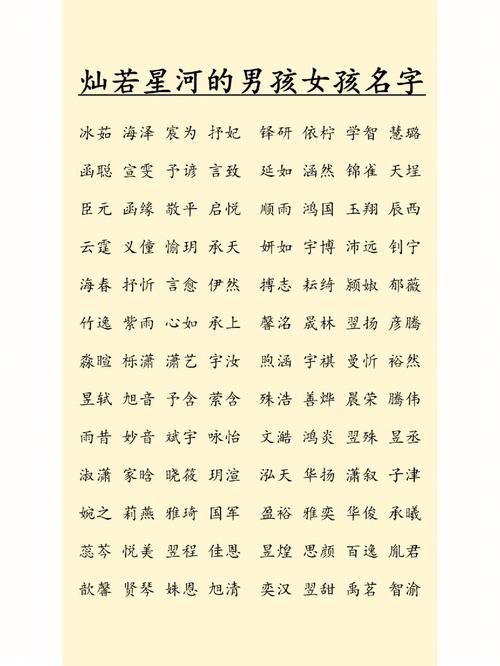 灿若星河的男孩女孩名字
冰茹 海泽 宸为 抒妃 铎研 依柠 学智 慧璐
函聪 宣雯 予谚 言致 延如 涵然 锦雀 天埕
臣元 函缘 敬平 启悦 顺雨 鸿国 玉翔 辰西
云霆 义僮 愉玥 承天 妍如 宇博 沛远 钊宁
海春 抒忻 言愈 伊然 搏志 耘绮 颍妮 郁薇
竹逸 紫雨 心如 承上 馨洺 晟林 翌扬 彦腾
淼暄 栎潇 潇艺 宇汝 煦涵 宇祺 曼忻 裕然
昱轼 旭音 予含 萦含 殊浩 善烨 晨荣 腾伟
雨昔 妙音 斌宇 咏怡 文澔 鸿炎 翌殊 昱丞
淑潇 家晗 晓筱 玥渲 泓天 华扬 潇叙 子津
婉之 莉燕 雅琦 国军 盈裕 雅奕 华俊 承曦
蕊芩 悦美 翌程 佳恩 昱煌 思颜 百逸 胤君
歆馨 贤琴 姝恩 旭清 奕汉 翌甜 禹茗 智渝